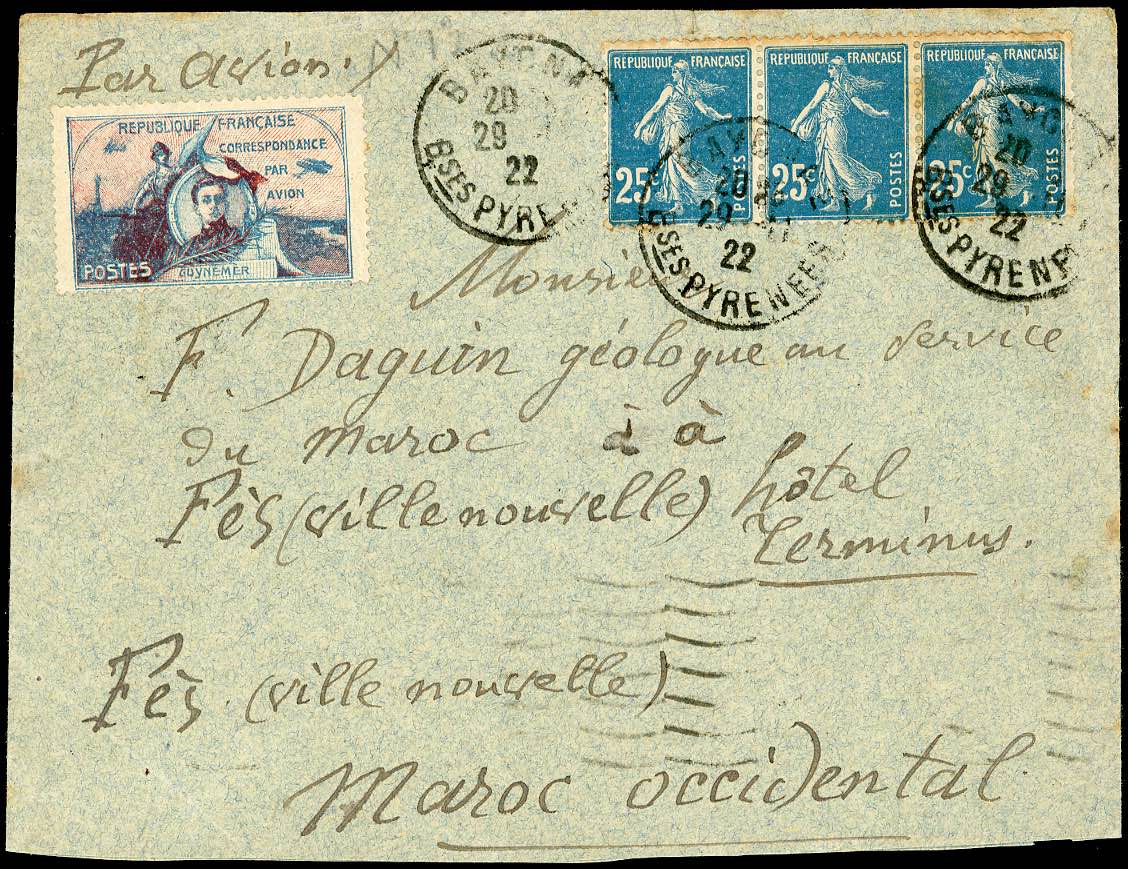 Par Avion.
REPUBLIQUE FRANÇAISE
CORRESPONDANCE
PAR
AVION
POSTES
GUYNEMER
BAYONN
20
29
22
BSES PYRENE
RÉPUBLIQUE FRANÇAISE
25c
POSTES
RÉPUBLIQUE FRANÇAISE
25c
POSTES
RÉPUBLIQUE FRANÇAISE
25c
POSTES
BAYO
20
29
22
BSES PYRENEES
BAYO
20
29
22
BSES PYRENE
Monsie
F. Daguin géologue au service
du maroc à à
Fès (ville nouvelle) hôtel
Terminus.
Fès (ville nouvelle)
Maroc occidental